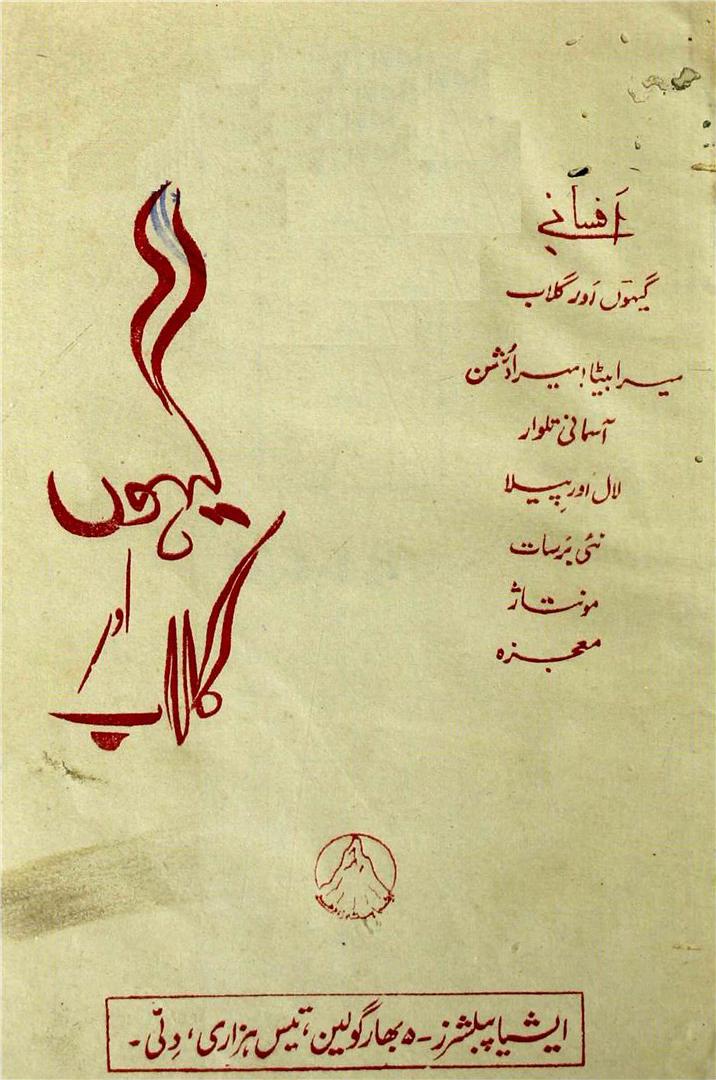 افسانے
گیہوں اور گلاب
میرا بیٹا! میرا دشمن
آسمانی تلوار
لال اور پیلا
نئی برسات
مونتاژ
معجزہ
گیہوں
اور
گلاب
ایشیا پبلشرز۔ ۵ بھارگولین، تیس ہزاری، دلّی۔